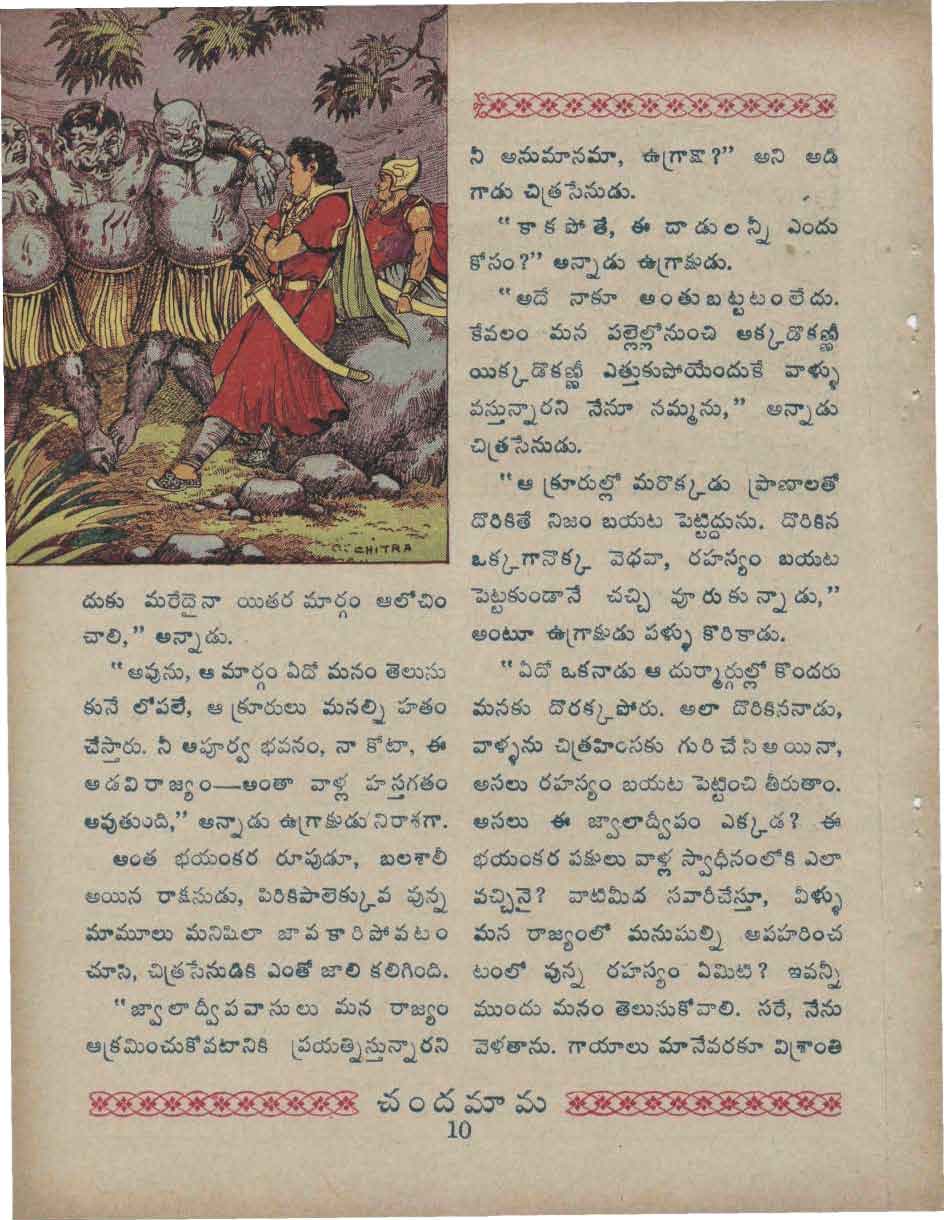 CHITRA
దుకు మరేదైనా యితర మార్గం ఆలోచిం
చాలి,” అన్నాడు.
“అవును, ఆ మార్గం ఏదో మనం తెలుసు
కునే లోపలే, ఆ క్రూరులు మనల్ని హతం
చేస్తారు. నీ అపూర్వ భవనం, నా కోటా, ఈ
అడవి రాజ్యం—అంతా వాళ్ల హస్తగతం
అవుతుంది,” అన్నాడు ఉగ్రాక్షుడు నిరాశగా.
అంత భయంకర రూపుడూ, బలశాలీ
అయిన రాక్షసుడు, పిరికిపాలెక్కువ వున్న
మామూలు మనిషిలా జావకారిపోవటం
చూసి, చిత్రసేనుడికి ఎంతో జాలి కలిగింది.
“జ్వాలాద్వీపవాసులు మన రాజ్యం
ఆక్రమించుకోవటానికి ప్రయత్నిస్తున్నారని
నీ అనుమానమా, ఉగ్రాక్షా?” అని అడి
గాడు చిత్రసేనుడు.
“కాకపోతే, ఈ దాడులన్నీ ఎందు
కోసం?” అన్నాడు ఉగ్రాక్షుడు.
“అదే నాకూ అంతుబట్టటంలేదు.
కేవలం మన పల్లెల్లోనుంచి అక్కడొకణ్ణీ
యిక్కడొకణ్ణీ ఎత్తుకుపోయేందుకే వాళ్ళు
వస్తున్నారని నేనూ నమ్మను,” అన్నాడు
చిత్రసేనుడు.
“ఆ క్రూరుల్లో మరొక్కడు ప్రాణాలతో
దొరికితే నిజం బయట పెట్టిద్దును. దొరికిన
ఒక్కగానొక్క వెధవా, రహస్యం బయట
పెట్టకుండానే చచ్చి వూరుకున్నాడు,”
అంటూ ఉగ్రాక్షుడు పళ్ళు కొరికాడు.
“ఏదో ఒకనాడు ఆ దుర్మార్గుల్లో కొందరు
మనకు దొరక్కపోరు. అలా దొరికిననాడు,
వాళ్ళను చిత్రహింసకు గురిచేసి అయినా,
అసలు రహస్యం బయట పెట్టించి తీరుతాం.
అసలు ఈ జ్వాలాద్వీపం ఎక్కడ? ఈ
భయంకర పక్షులు వాళ్ల స్వాధీనంలోకి ఎలా
వచ్చినై? వాటిమీద సవారీచేస్తూ, వీళ్ళు
మన రాజ్యంలో మనుషుల్ని అపహరించ
టంలో వున్న రహస్యం ఏమిటి? ఇవన్నీ
ముందు మనం తెలుసుకోవాలి. సరే, నేను
వెళతాను. గాయాలు మానేవరకూ విశ్రాంతి
చందమామ
10